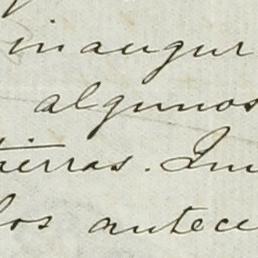 inaugur
algunos
tierras. Im
los antece